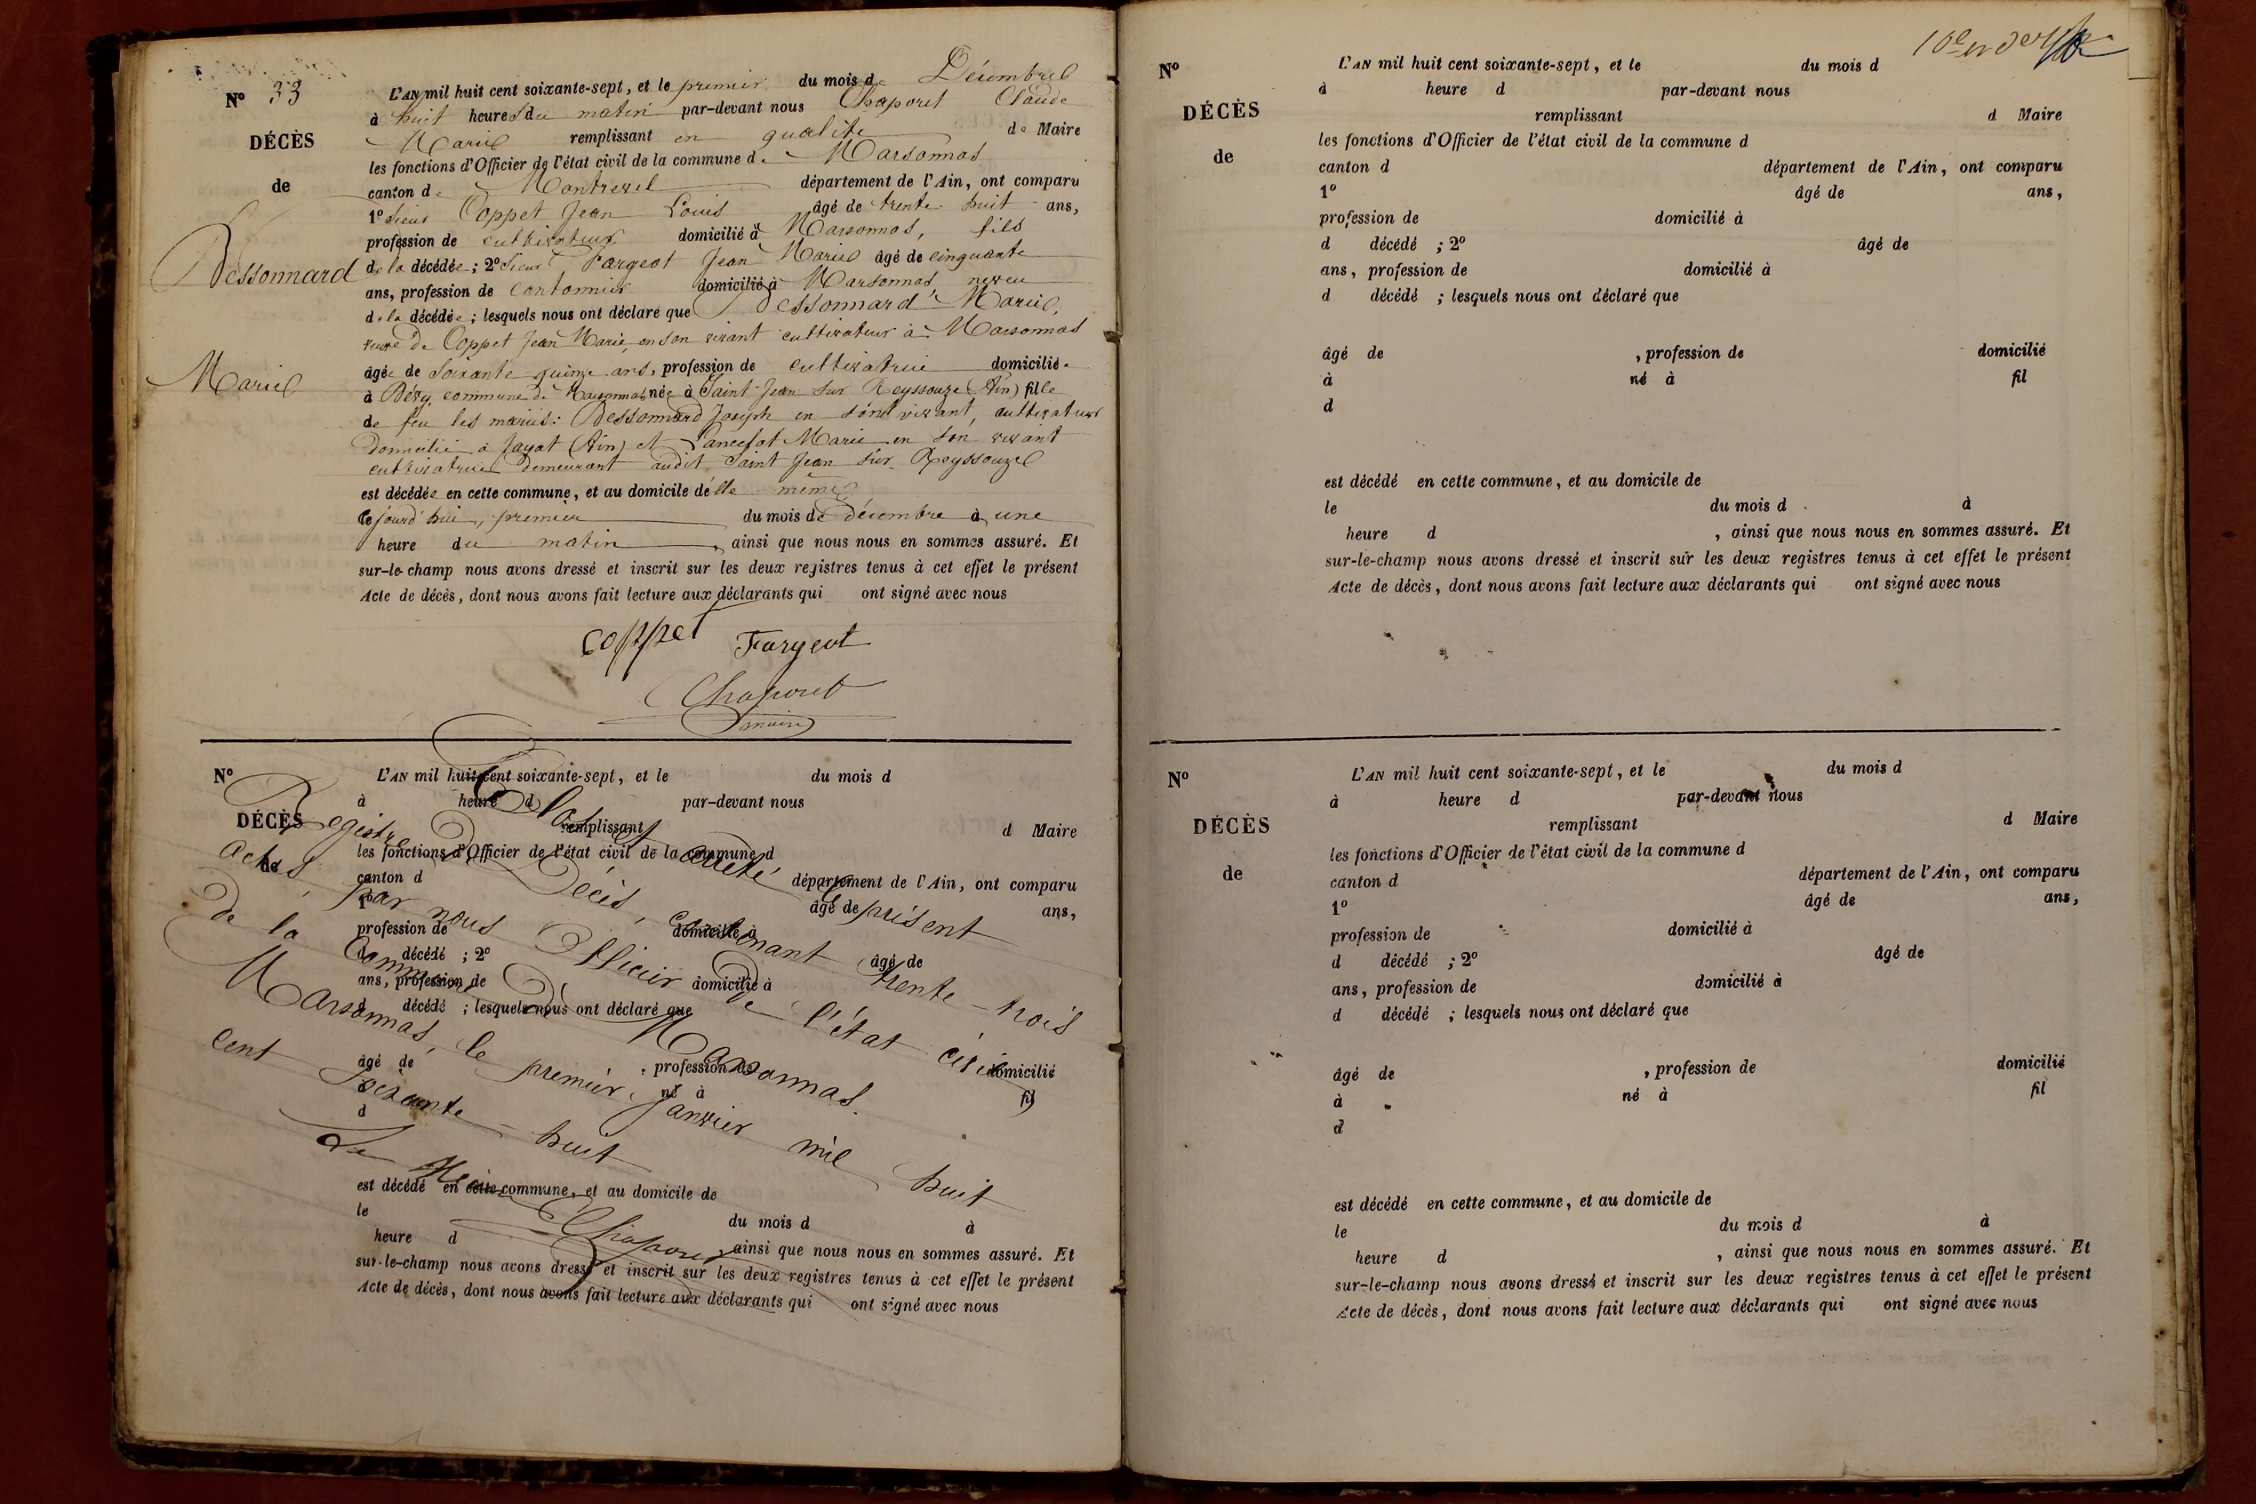 N° 33
DÉCÈS
de
Bessonnard
Marie
L'AN mil huit cent soixante-sept, et le premier du mois de Décembre
à huit heures du matin par-devant nous Chaporet Claude
Marie remplissant en qualité de Maire
les fonctions d'Officier de l'état civil de la commune de Marsonnas
canton de Montrevel département de l'Ain, ont comparu
1° Sieur Coppet Jean Louis âgé de trente huit ans,
profession de cultivateur domicilié à Marsonnas, fils
de la décédée; 2° Sieur Fargeot Jean Marie âgé de cinquante
ans, profession de cantonnier domicilié à Marsonnas, neveu
de la décédée; lesquels nous ont déclaré que Bessonnard Marie,
veuve de Coppet Jean Marie, en son vivant cultivateur à Marsonnas
âgée de soixante quinze ans, profession de cultivatrice domiciliée
à Béry, commune de Marsonnas née à Saint Jean sur Reyssouze (Ain) fille
de feu les mariés: Bessonnard Joseph en son vivant, cultivateur
domicilié à Jayat (Ain) et Pancefot Marie en son vivant
cultivatrice demeurant audit Saint Jean sur Reyssouze
est décédée en cette commune, et au domicile d'elle même
le jourd'hui, premier du mois de décembre à une
heure du matin, ainsi que nous nous en sommes assuré. Et
sur-le-champ nous avons dressé et inscrit sur les deux registres tenus à cet effet le présent
Acte de décès, dont nous avons fait lecture aux déclarants qui ont signé avec nous
coppet Fargeot
Chaporet
maire
N°
DÉCÈS
de
L'AN mil huit cent soixante-sept, et le du mois d
à heure d par-devant nous
remplissant d Maire
les fonctions d'Officier de l'état civil de la commune d
canton d département de l'Ain, ont comparu
1° âgé de ans,
profession de domicilié à
d décédé ; 2° âgé de
ans, profession de domicilié à
d décédé ; lesquels nous ont déclaré que
âgé de , profession de domicilié
à né à fil
d
est décédé en cette commune, et au domicile de
le du mois d à
heure d , ainsi que nous nous en sommes assuré. Et
sur-le-champ nous avons dressé et inscrit sur les deux registres tenus à cet effet le présent
Acte de décès, dont nous avons fait lecture aux déclarants qui ont signé avec nous
Clos et arrêté le présent
Registre De Décès, contenant trente-trois
actes, par nous Officier de l'état civil
de la Commune De Marsonnas.
Marsonnas, le premier, Janvier mil huit
cent soixante-huit
Le Maire
Chaporet
N°
DÉCÈS
de
L'AN mil huit cent soixante-sept, et le du mois d
à heure d par-devant nous
remplissant d Maire
les fonctions d'Officier de l'état civil de la commune d
canton d département de l'Ain, ont comparu
1° âgé de ans,
profession de domicilié à
d décédé ; 2° âgé de
ans, profession de domicilié à
d décédé ; lesquels nous ont déclaré que
âgé de , profession de domicilié
à né à fil
d
est décédé en cette commune, et au domicile de
le du mois d à
heure d , ainsi que nous nous en sommes assuré. Et
sur-le-champ nous avons dressé et inscrit sur les deux registres tenus à cet effet le présent
Acte de décès, dont nous avons fait lecture aux déclarants qui ont signé avec nous
N°
DÉCÈS
de
L'AN mil huit cent soixante-sept, et le du mois d
à heure d par-devant nous
remplissant d Maire
les fonctions d'Officier de l'état civil de la commune d
canton d département de l'Ain, ont comparu
1° âgé de ans,
profession de domicilié à
d décédé ; 2° âgé de
ans, profession de domicilié à
d décédé ; lesquels nous ont déclaré que
âgé de , profession de domicilié
à né à fil
d
est décédé en cette commune, et au domicile de
le du mois d à
heure d , ainsi que nous nous en sommes assuré. Et
sur-le-champ nous avons dressé et inscrit sur les deux registres tenus à cet effet le présent
Acte de décès, dont nous avons fait lecture aux déclarants qui ont signé avec nous